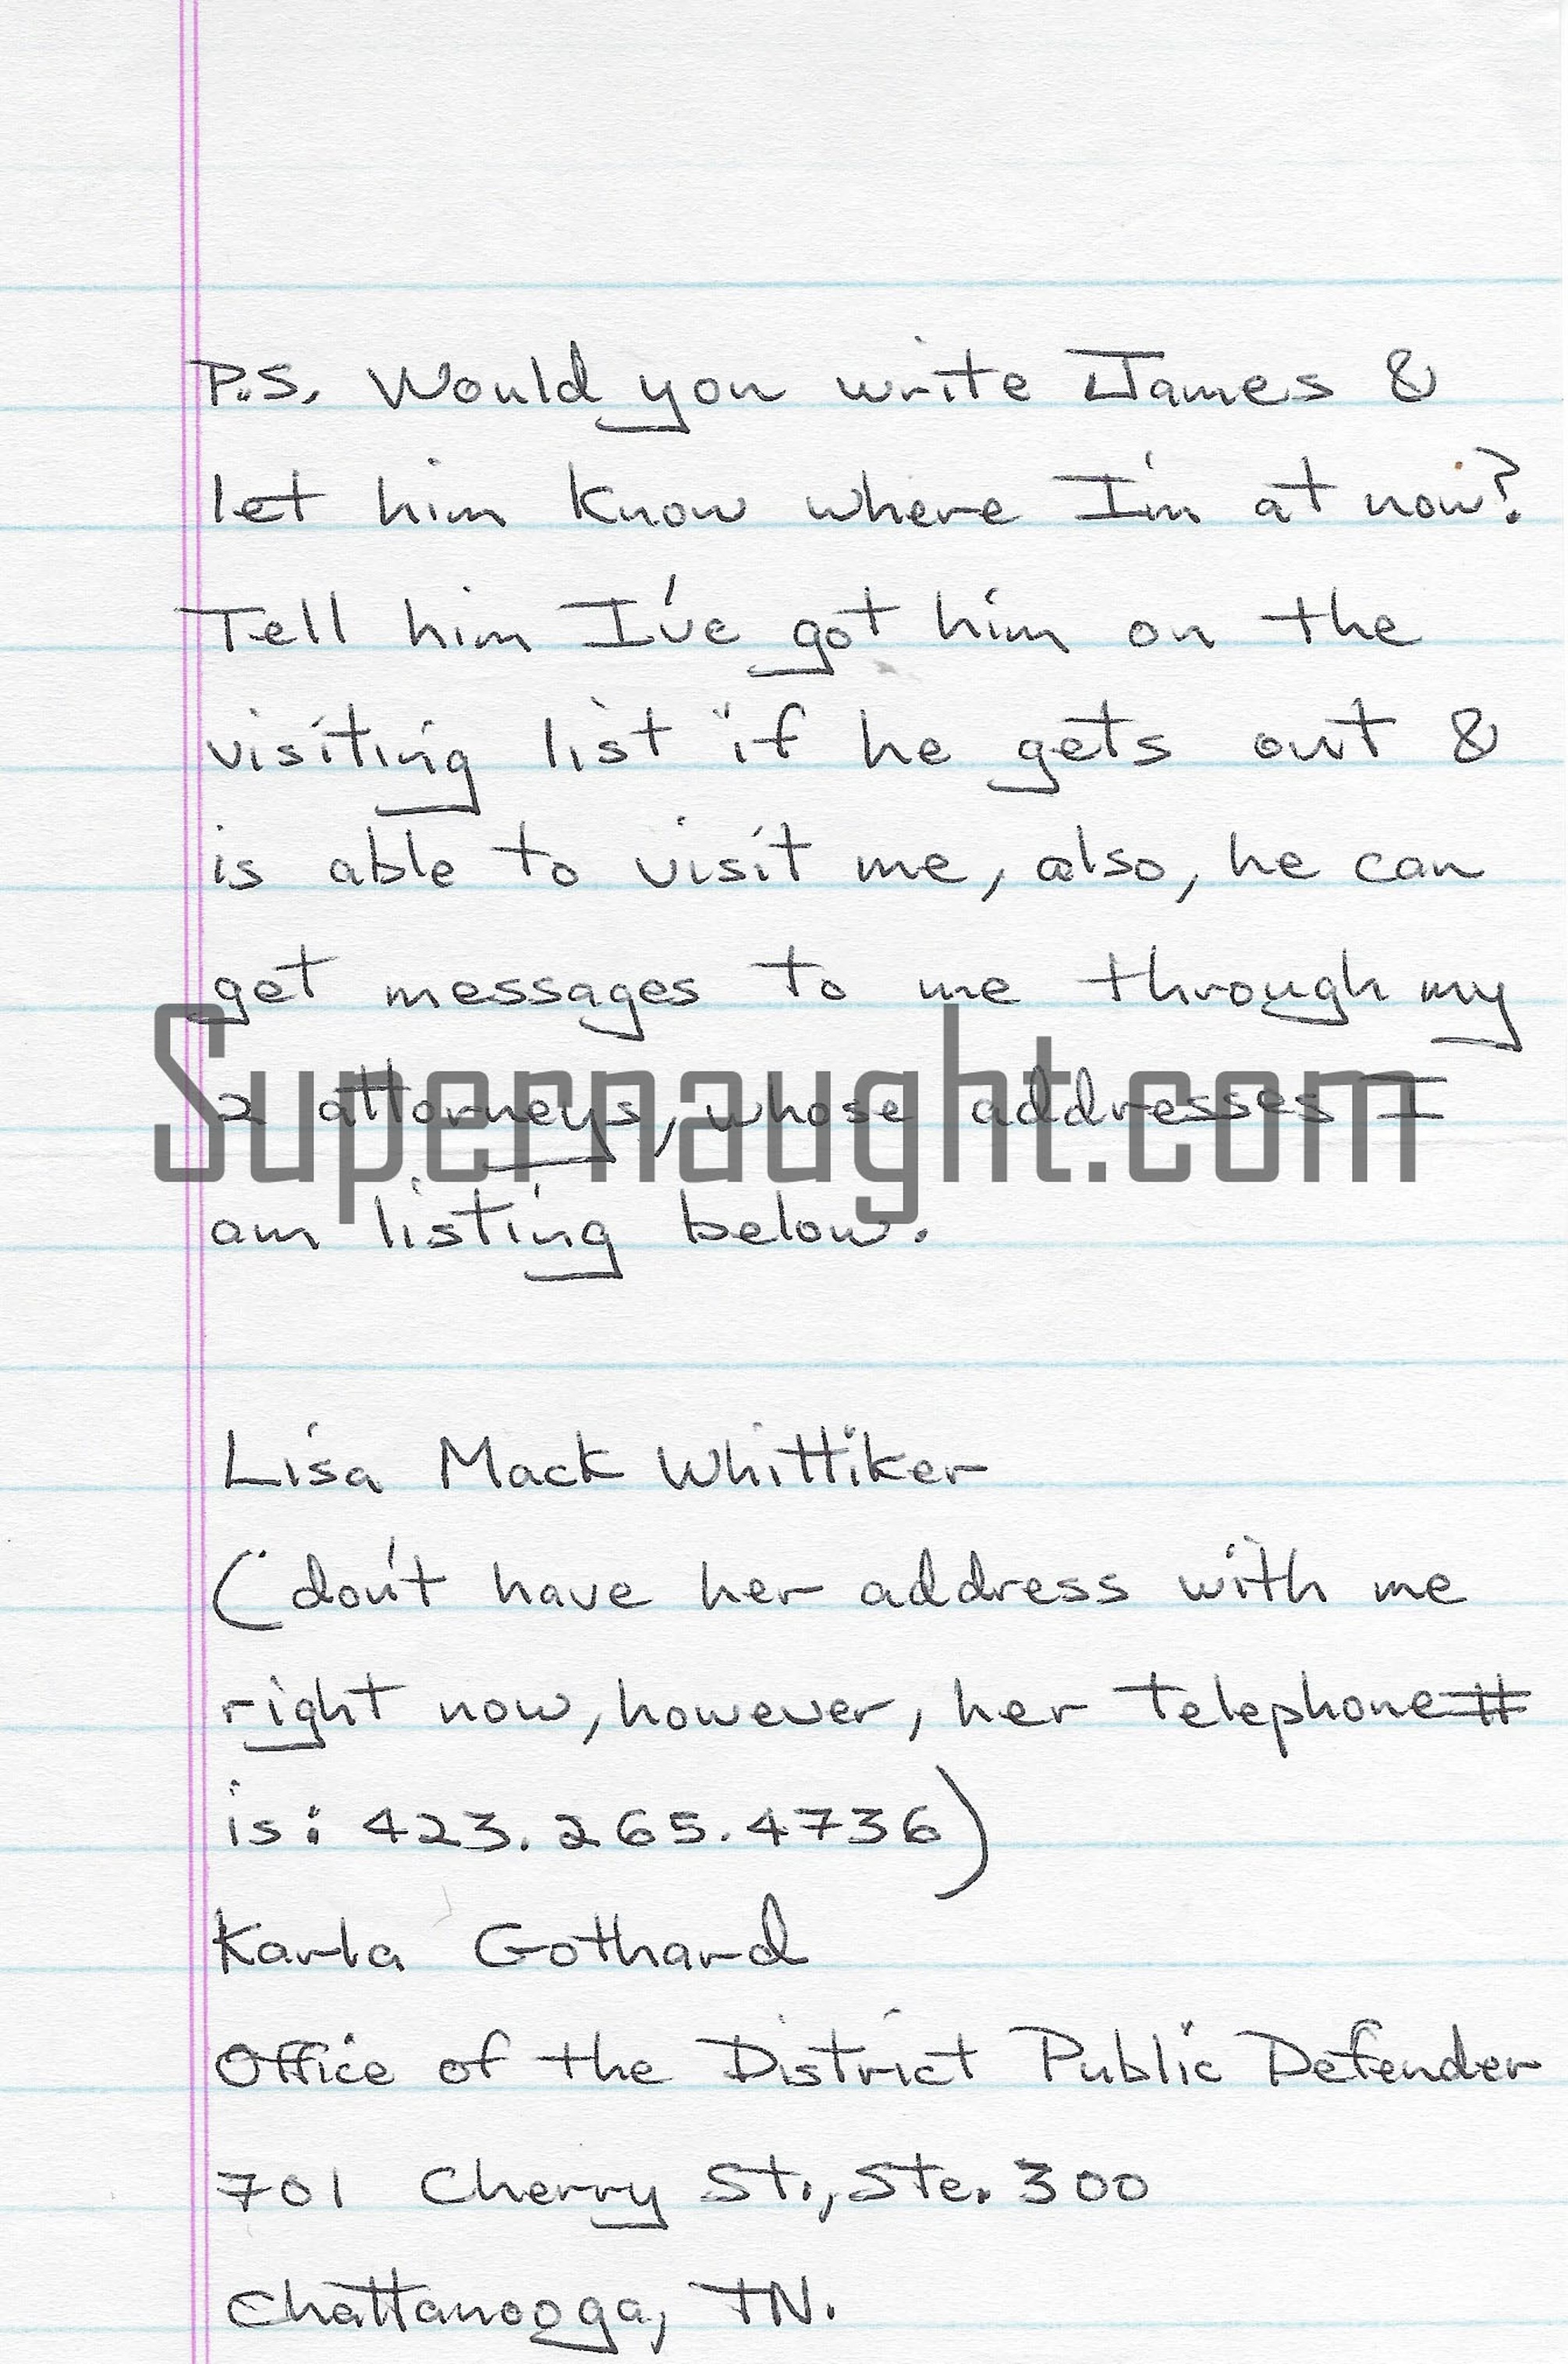 P.S. Would you write James &
let him know where I'm at now?
Tell him I've got him on the
visiting list if he gets out &
is able to visit me, also, he can
get messages to me through my
Supernaught.com
2 attorneys, whose addresses I
am listing below.
Lisa Mack Whittiker
(don't have her address with me
right now, however, her telephone #
is: 423.265.4736)
Karla Gothard
Office of the District Public Defender
701 Cherry St., Ste. 300
Chattanooga, TN.